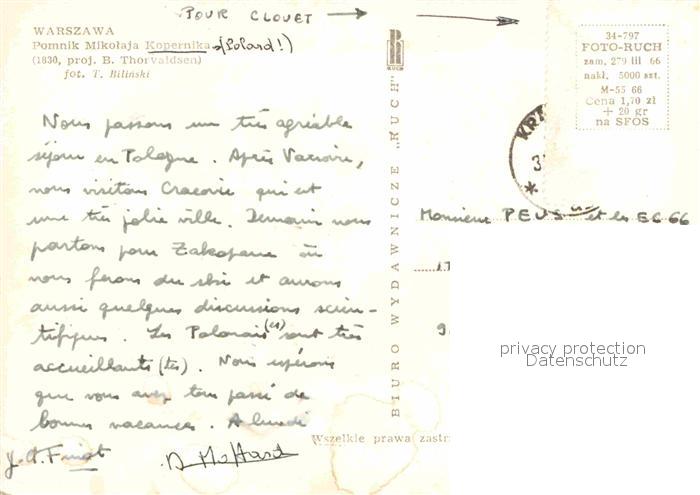 POUR CLOUET
WARSZAWA
Pomnik Mikołaja Kopernika (Polard!)
(1830, proj. B. Thorvaldsen)
fot. T. Biliński
34-797
FOTO-RUCH
zam. 279 III 66
nakł. 5000 szt.
M-55 66
Cena 1,70 zł
+ 20 gr
na SFOS
RUCH
BIURO WYDAWNICZE „RUCH"
KRA
Nous passons un très agréable
séjour en Pologne. Après Varsovie,
nous visitons Cracovie qui est
une très jolie ville. Demain nous
partons pour Zakopane où
nous ferons du ski et aurons
aussi quelques discussions scien-
tifiques. Les Polonais(es) sont très
accueillants (tes). Nous espérons
que vous avez tous passé de
bonnes vacances. A lundi
Monsieur PEUS et les EC 66
Wszelkie prawa zastrz
privacy protection
Datenschutz